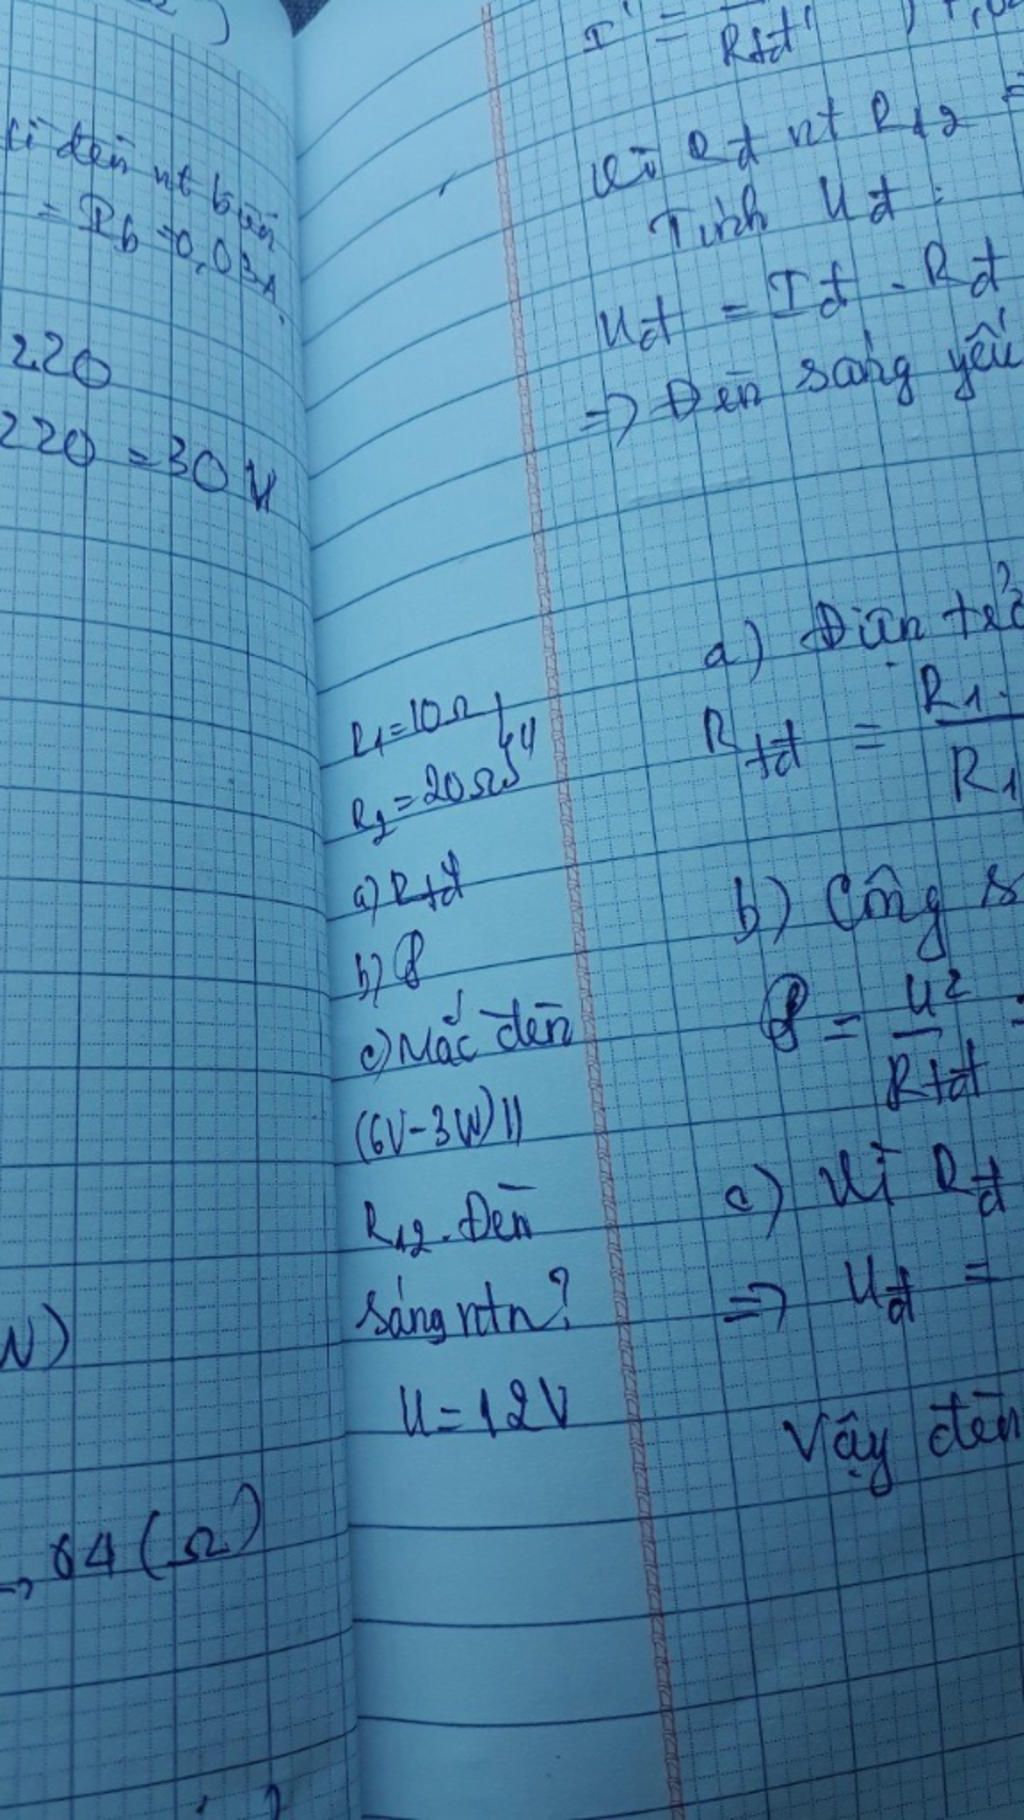 đèn nt biến
= I_b = 0,03A
220
220 = 30 V
W)
64 (Ω)
R₁ = 10Ω
R₂ = 20Ω } //
a) Rtđ
b) P
c) Mắc đèn
(6V-3W) //
R₁₂. Đèn
sáng ntn?
U = 12V
I' =
Rtđ'
Vì Rđ nt R₁₂ =
Tính Uđ :
Uđ = Iđ . Rđ
=> Đèn sáng yếu
a) Điện trở
Rtđ = R₁.
R₁
b) Công
P = U²
Rtđ
c) Vì Rđ
=> Uđ =
Vậy đèn